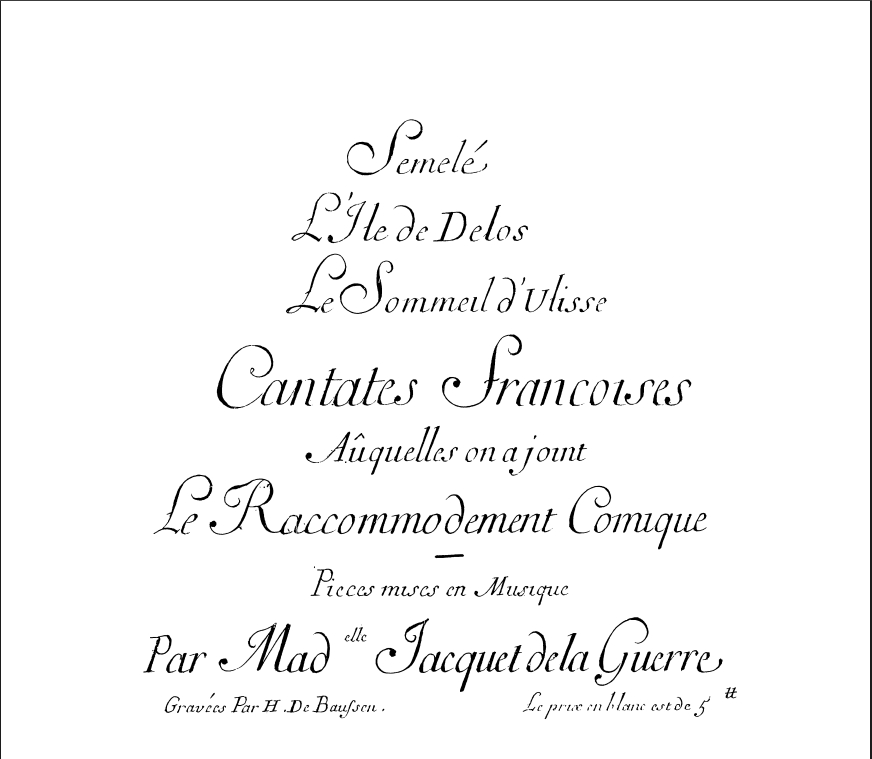 Semelé
L'Ile de Delos
Le Sommeil d'Ulisse
Cantates Francoises
Aûquelles on a joint
Le Raccommodement Comique
Pieces mises en Musique
Par Mad elle Jacquet de la Guerre
Gravées Par H. De Baussen.
Le prix en blanc est de 5 tt